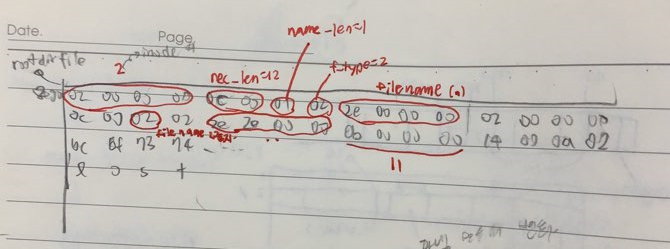 Date.
Page
name-len=1
inode #
root dir file
2
rec_len=12
f_type=2
file name (.)
02 00 00 00 0c 00 01 02 2e 00 00 00 02 00 00 00
0c 00 02 02 2e 2e 00 00 0b 00 00 00 14 00 0a 02
file name
..
6c 6f 73 74
11
l o s t